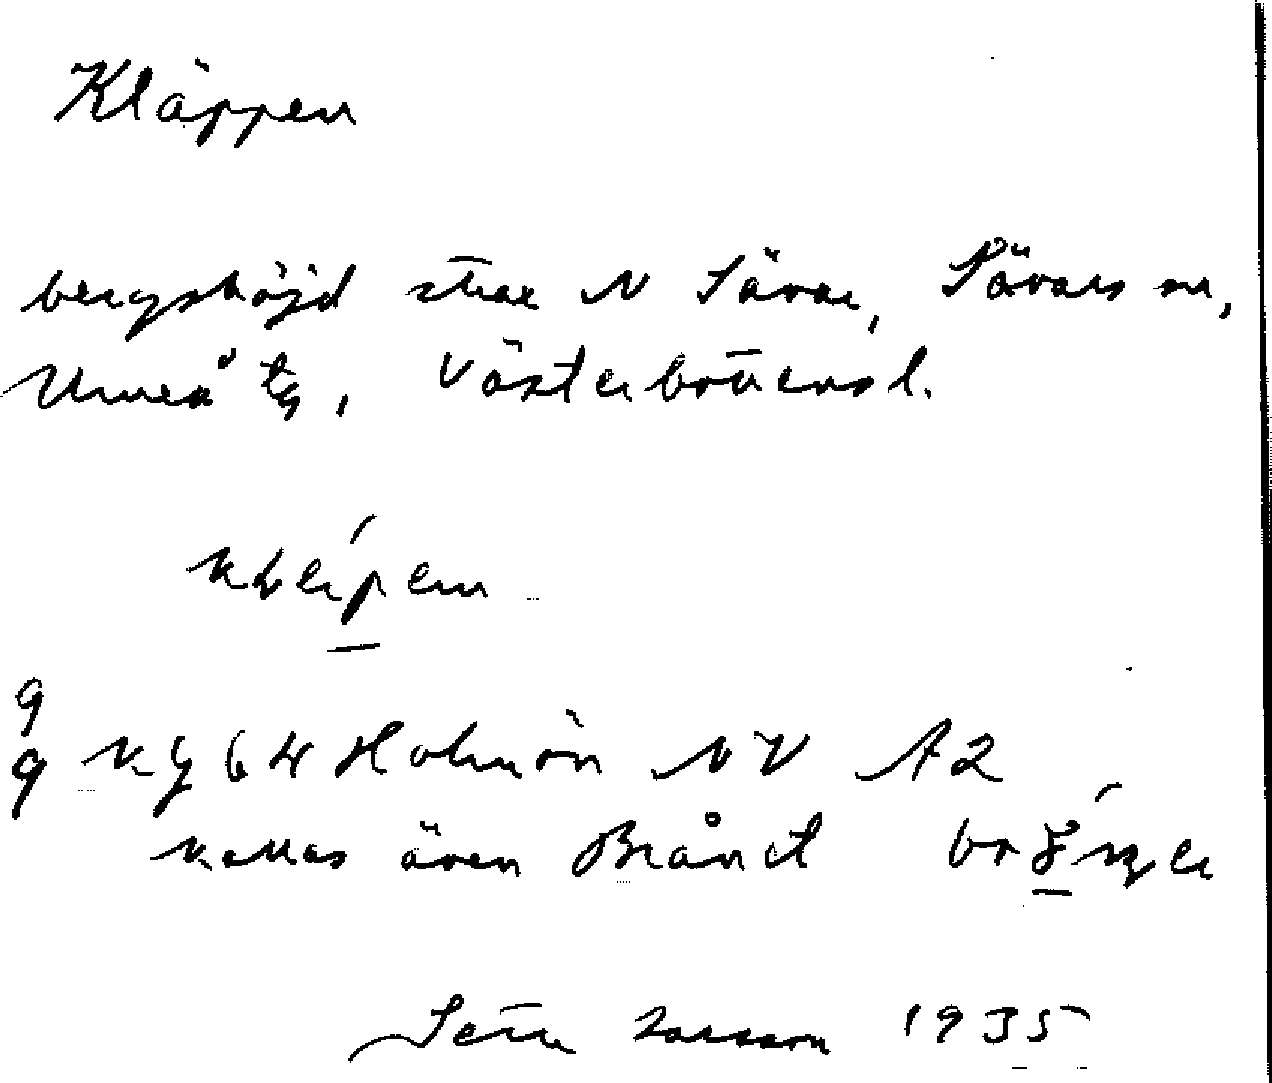 Kläppen
bergshöjd strax N Sävar, Sävars sn,
Umeå tg, Västerbottens l.
9
9 64 Holmön NV A2
kallas även Brånet
Setre Larsson 1935